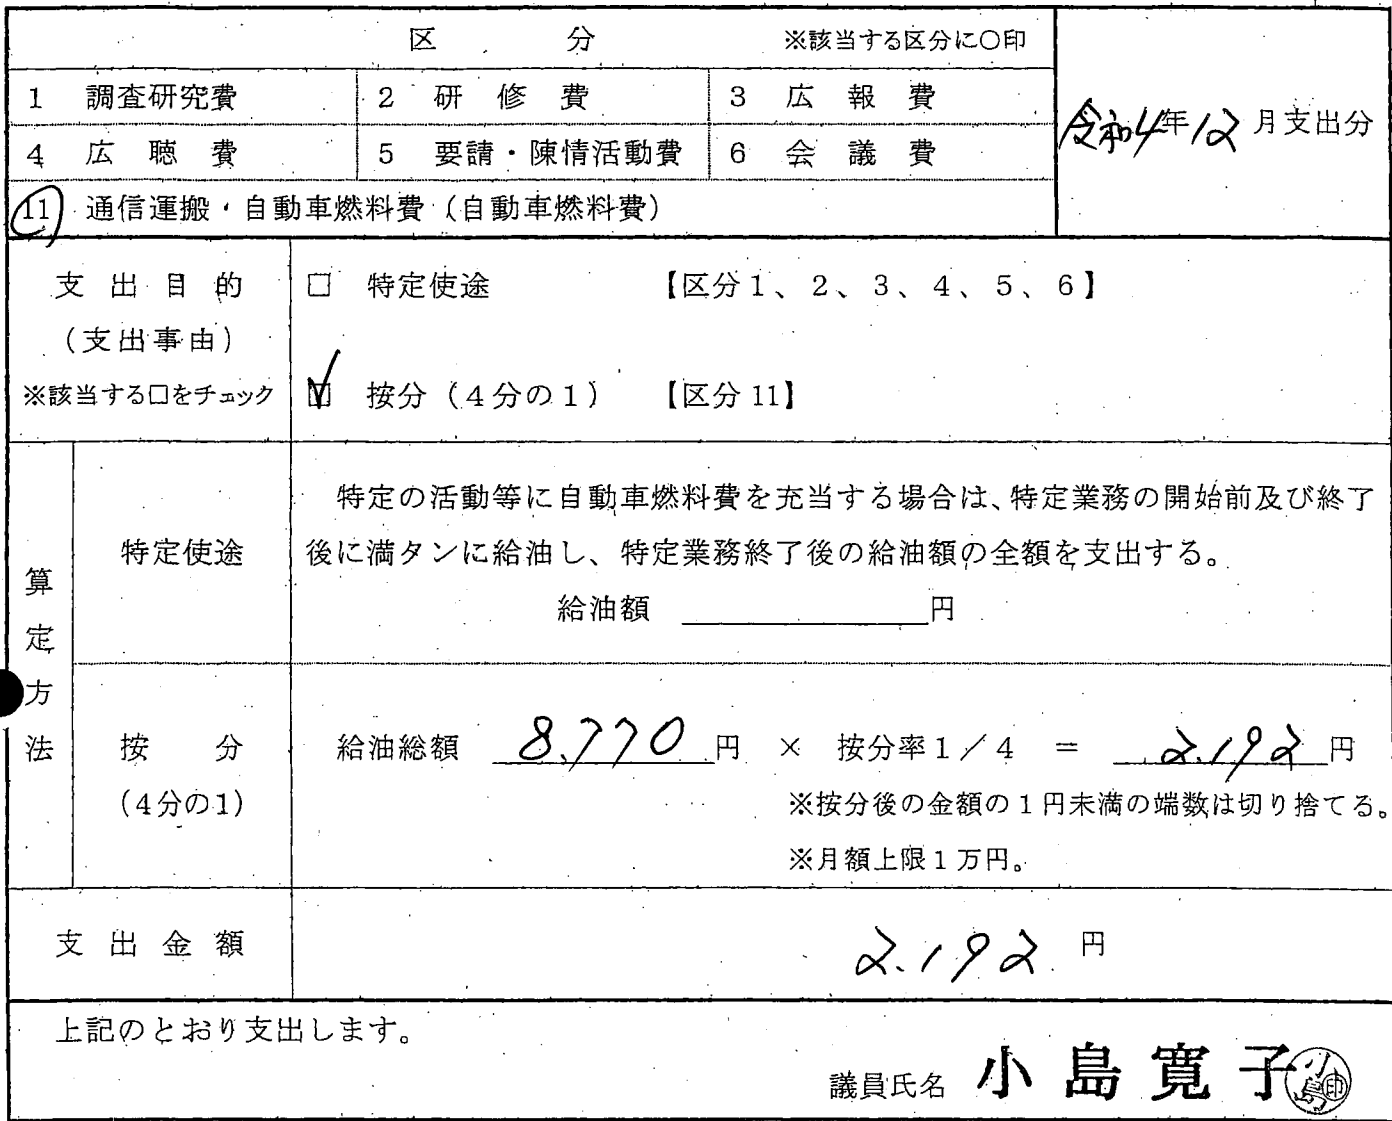 区 分 ※該当する区分に〇印
1 調査研究費 2 研修費 3 広報費
令和4年12月支出分
4 広聴費 5 要請・陳情活動費 6 会議費
11 通信運搬・自動車燃料費(自動車燃料費)
支出目的
(支出事由)
※該当する□をチェック
□ 特定使途 【区分1、2、3、4、5、6】
☑ 按分(4分の1) 【区分11】
算定方法
特定使途
特定の活動等に自動車燃料費を充当する場合は、特定業務の開始前及び終了
後に満タンに給油し、特定業務終了後の給油額の全額を支出する。
給油額 円
按分
(4分の1)
給油総額 8,770円 × 按分率1/4 = 2.192円
※按分後の金額の1円未満の端数は切り捨てる。
※月額上限1万円。
支出金額 2.192 円
上記のとおり支出します。
議員氏名 小島寛子
小島印